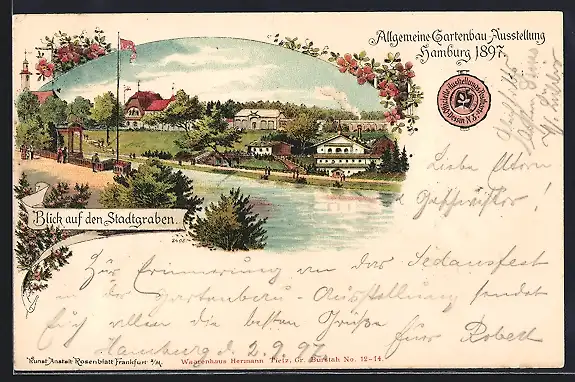 Allgemeine Gartenbau-Ausstellung
Hamburg 1897.
Blick auf den Stadtgraben.
2408
Liebe Eltern
Geschwister!
Zur Erinnerung an das Sedansfest
in der Gartenbau-Ausstellung sendet
Euch allen die besten Grüße
Euer Robert
Hamburg d. 2.9.97.
Kunst-Anstalt Rosenblatt Frankfurt a/M.
Waarenhaus Hermann Tietz, Gr. Burstah No. 12-14.